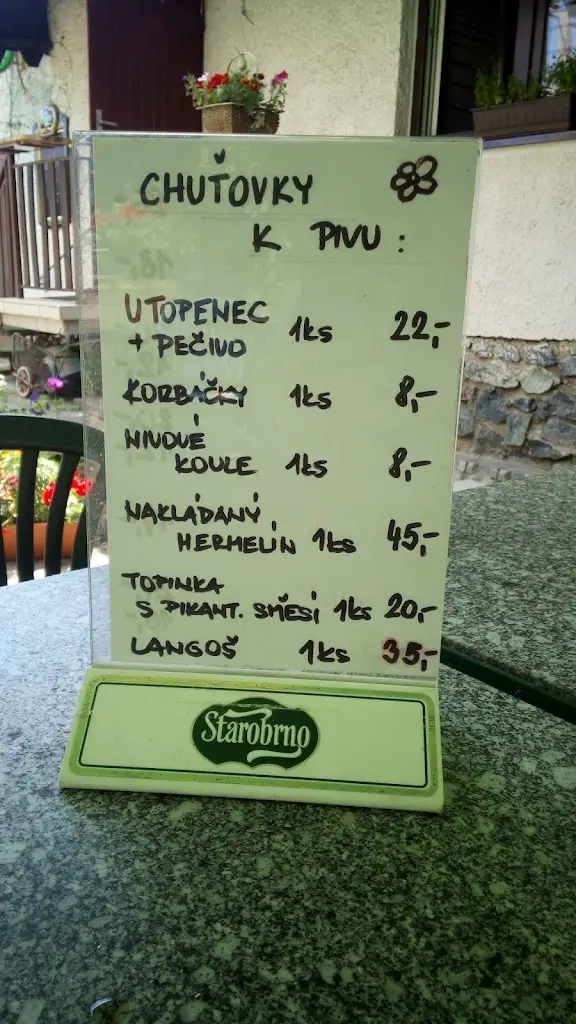 CHUŤOVKY
K PIVU :
UTOPENEC
+ PEČIVO 1ks 22,-
KORBÁČKY 1ks 8,-
NIVOVÉ
KOULE 1ks 8,-
NAKLÁDANÝ
HERMELÍN 1ks 45,-
TOPINKA
S PIKANT. SMĚSÍ 1ks 20,-
LANGOŠ 1ks 35,-
Starobrno